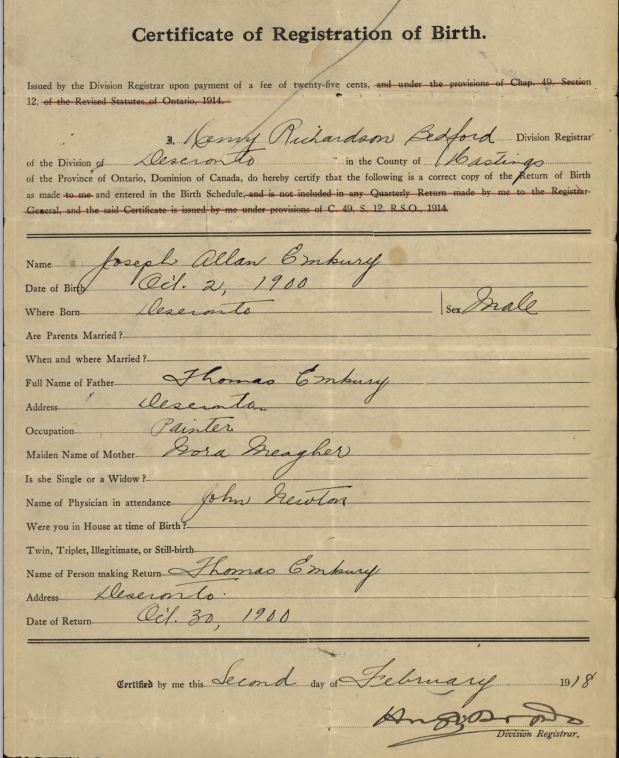 Certificate of Registration of Birth.
Issued by the Division Registrar upon payment of a fee of twenty-five cents, and under the provisions of Chap. 49, Section
12, of the Revised Statutes of Ontario, 1914.
I, Henry Richardson Bedford Division Registrar
of the Division of Deseronto in the County of Hastings
of the Province of Ontario, Dominion of Canada, do hereby certify that the following is a correct copy of the Return of Birth
as made to me and entered in the Birth Schedule, and is not included in any Quarterly Return made by me to the Registrar-
General, and the said Certificate is issued by me under provisions of C. 49, S. 12, R.S.O., 1914.
Name Joseph Allan Embury
Date of Birth Oct. 2, 1900
Where Born Deseronto Sex Male
Are Parents Married?
When and where Married?
Full Name of Father Thomas Embury
Address Deseronto
Occupation Painter
Maiden Name of Mother Nora Meagher
Is she Single or a Widow?
Name of Physician in attendance John Newton
Were you in House at time of Birth?
Twin, Triplet, Illegitimate, or Still-birth
Name of Person making Return Thomas Embury
Address Deseronto.
Date of Return Oct. 30, 1900
Certified by me this Second day of February 1918
Division Registrar.